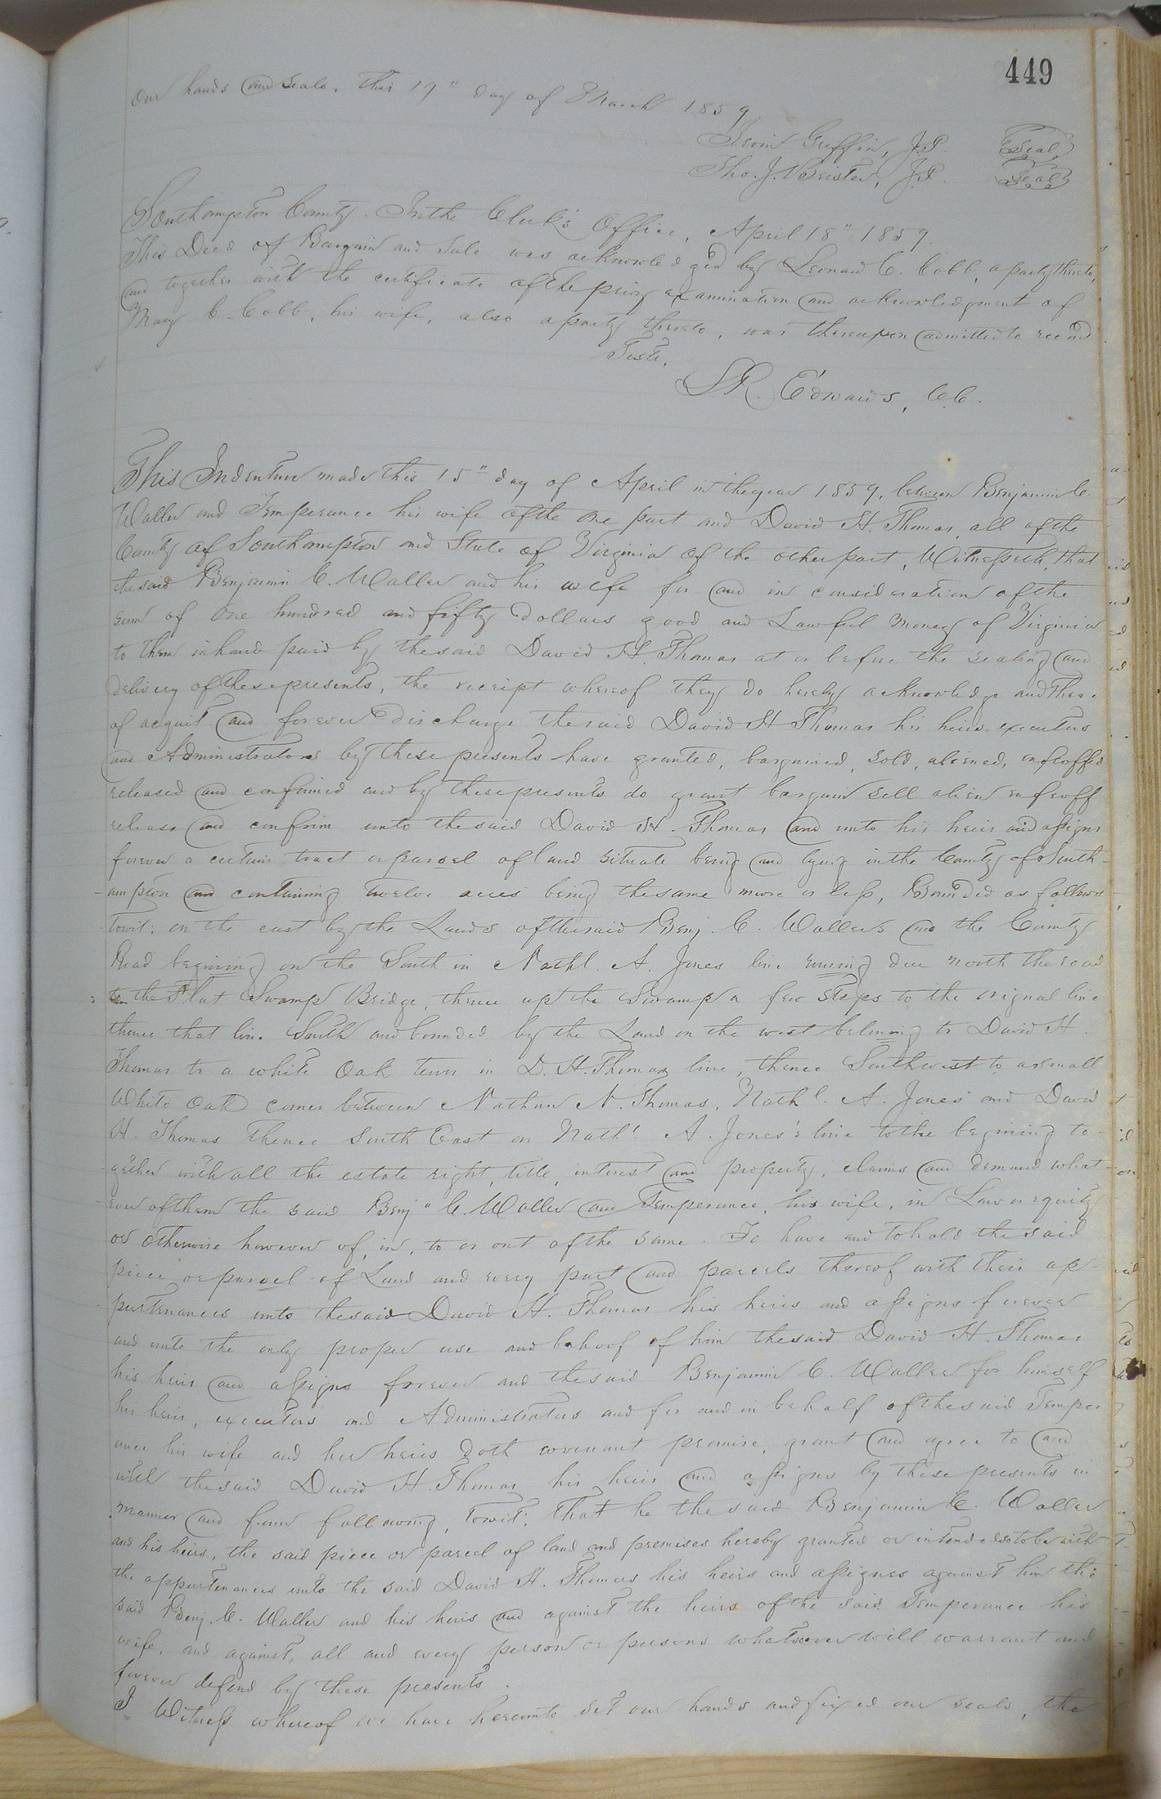 449
Our hands and seals. This 19" day of March 1859
Irvin Griffin, J.P. (Seal)
Tho. J. Brister, J.P. (Seal)
Southampton County. In the Clerk's Office, April 18" 1859.
This Deed of Bargain and Sale was acknowledged by Leonard C. Cobb, a party thereto,
and together with the certificate of the privy examination and acknowledgment of
Mary C. Cobb, his wife, also a party thereto, was thereupon admitted to record
Teste,
LR. Edwards, C.C.
This Indenture made this 15" day of April in the year 1859, between Benjamin C.
Waller and Temperance his wife of the one part and David H. Thomas, all of the
County of Southampton and State of Virginia of the other part, Witnesseth, that
the said Benjamin C. Waller and his wife for and in consideration of the
sum of One hundred and fifty Dollars good and Lawful money of Virginia
to them in hand paid by the said David H. Thomas at or before the sealing and
delivery of these presents, the receipt whereof they do hereby acknowledge and there-
of acquit and forever discharge the said David H Thomas his heirs executors
and Administrators by these presents have granted, bargained, sold, aliened, enfeoffed
released and confirmed and by these presents do grant bargain sell alien enfeoff
release and confirm unto the said David H. Thomas and unto his heirs and assigns
forever a certain tract or parcel of land situate being and lying in the County of South-
ampton and containing twelve acres being the same more or less, Bounded as follows
towit: on the east by the Lands of the said Benj. C. Wallers and the County
Road begining on the South in Nathl. A. Jones line runing due north the road
to the Flat Swamp Bridge, thence up the Swamp a few Steps to the orignal line
thence that line South and bounded by the Land on the west belonng to David H.
Thomas to a white Oak in D. H. Thomas line, thence Southwest to a small
White Oak corner between Nathan N. Thomas, Nathl. A. Jones and David
H. Thomas thence South East on Nathl. A. Jones's line to the begining to-
gether with all the estate right, title, interest and property, claims and demand what-
ever of them the said Benj" C. Waller and Temperance, his wife, in Law or equity
or otherwise however of, in, to or out of the same. To have and to hold the said
piece or parcel of Land and every part and parcels thereof with their ap-
purtenances unto the said David H. Thomas his heirs and assigns forever
and unto the only proper use and behoof of him the said David H. Thomas
his heirs and assigns forever and the said Benjamin C. Waller for himself
his heirs, executors and Administrators and for and in behalf of the said Temper
ance his wife and her heirs doth covenant promise, grant and agree to and
with the said David H. Thomas his heirs and assigns by these presents in
manner and form following, towit: That he the said Benjamin C. Waller
and his heirs, the said piece or parcel of land and premises hereby granted or intended to be with
the appurtenances unto the said David H. Thomas his heirs and assignes against him the
said Benj. C. Waller and his heirs and against the heirs of the said Temperance his
wife, and against, all and every person or persons whatsoever will warrant and
forever defend by these presents.
I Witness whereof we have hereunto set our hands and fixed our seals, the